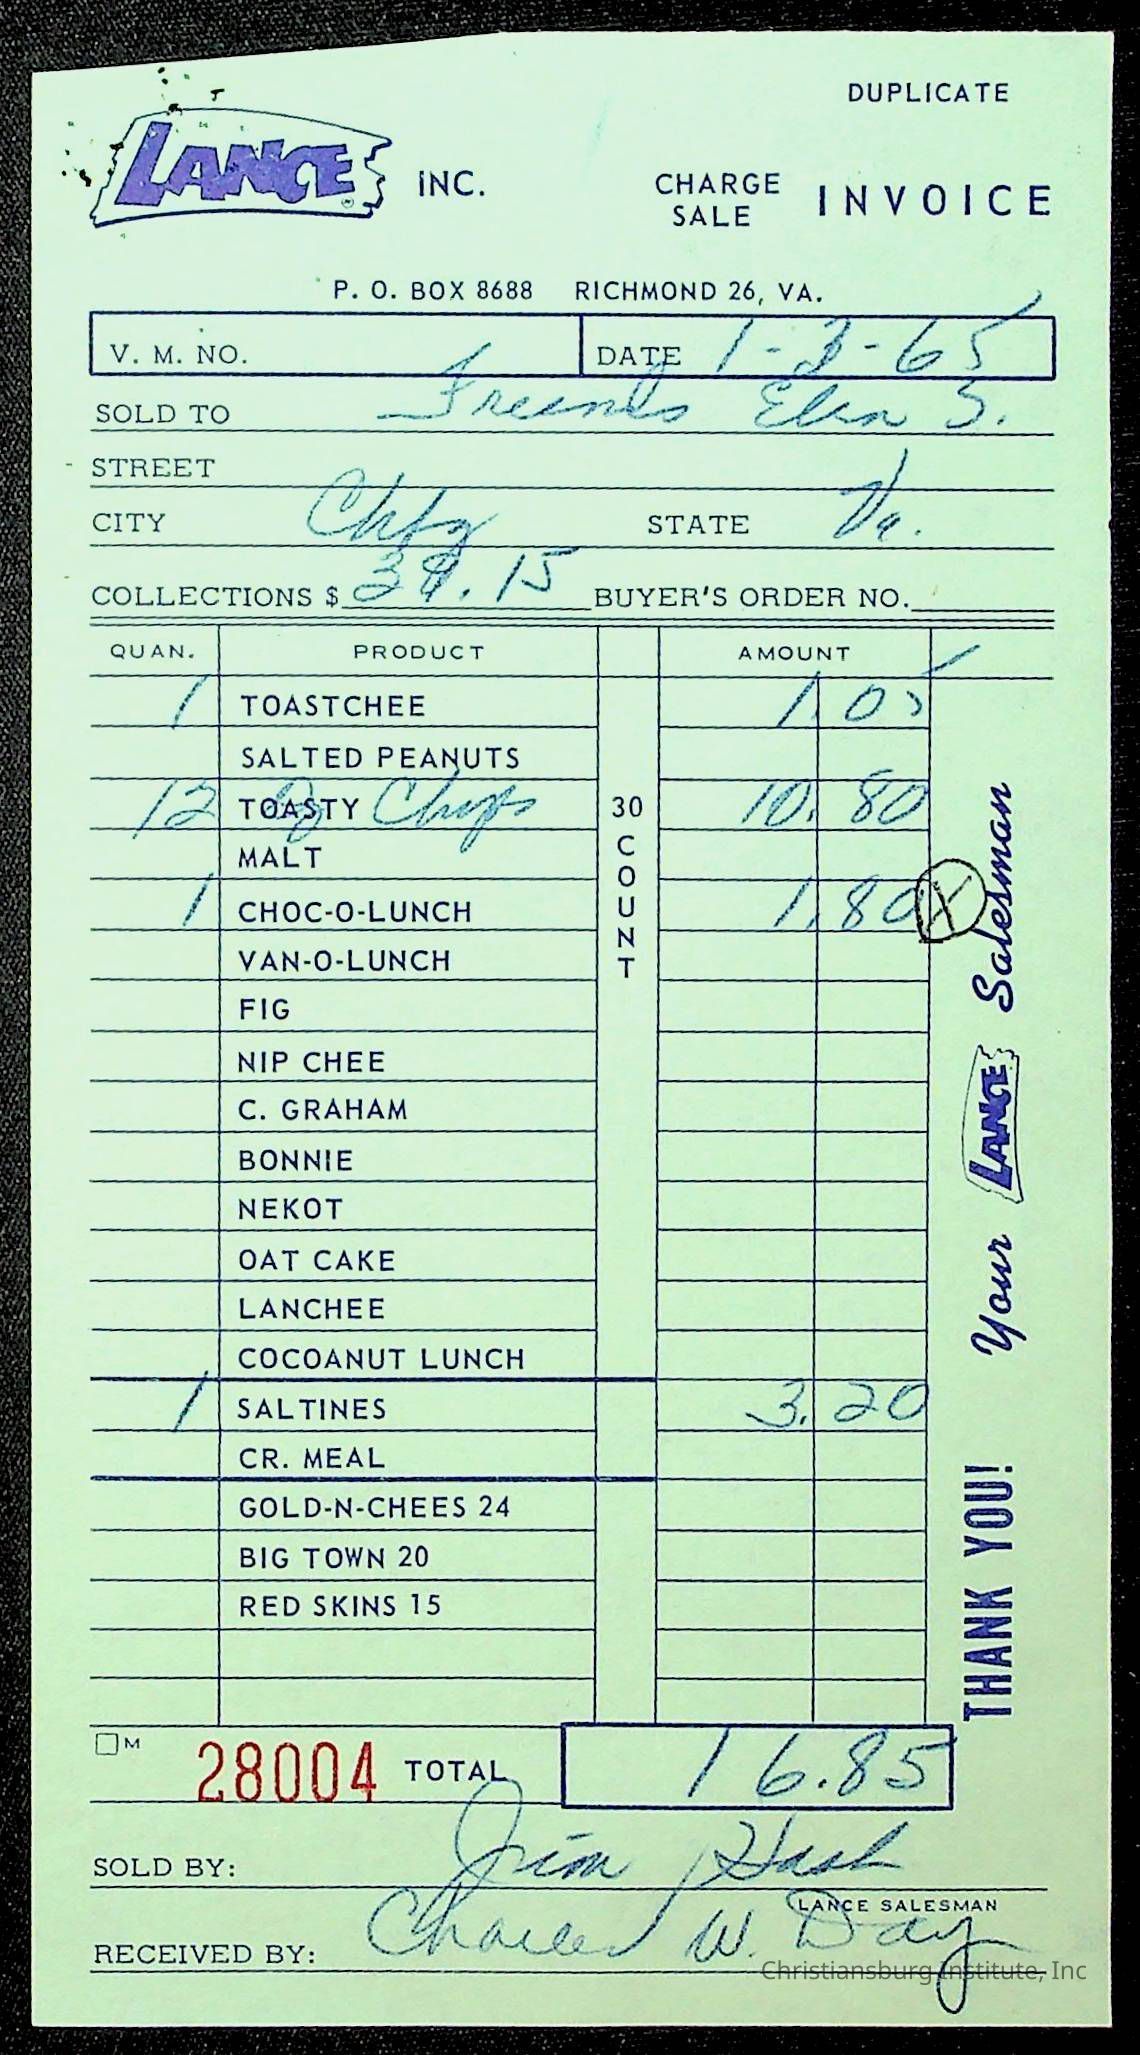 DUPLICATE
LANCE INC. CHARGE SALE INVOICE
P. O. BOX 8688 RICHMOND 26, VA.
V. M. NO. DATE 1-3-65
SOLD TO Friends Elem S.
STREET
CITY Chbg STATE Va.
COLLECTIONS $ 39.15 BUYER'S ORDER NO.
QUAN. PRODUCT AMOUNT
1 TOASTCHEE 1.05
SALTED PEANUTS
12 TOASTY Chips 30 COUNT 10.80
MALT
1 CHOC-O-LUNCH 1.80 X
VAN-O-LUNCH
FIG
NIP CHEE
C. GRAHAM
BONNIE
NEKOT
OAT CAKE
LANCHEE
COCOANUT LUNCH
1 SALTINES 3.20
CR. MEAL
GOLD-N-CHEES 24
BIG TOWN 20
RED SKINS 15
M 28004 TOTAL 16.85
SOLD BY: Jim Hash
LANCE SALESMAN
RECEIVED BY: Charles W. Day
THANK YOU! Your LANCE Salesman
Christiansburg Institute, Inc